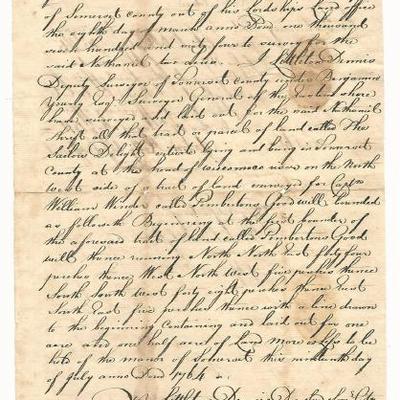 of Somerset county out of his Lordships Land office
the eighth day of march anno Dom one thousand
seven hundred and sixty four to survey for the
said Nathaniel two acres. I Littleton Dennis
Deputy Surveyor of Somerset County under Benjamin
Young Esqr Surveyor General of the Eastern shore
have surveyed and laid out for the said Nathaniel
Shrift all that tract or parcel of land called The
Delight situate lying and being in Somerset
County at the head of wicomoco river on the North
west side of a tract of land surveyed for Captn
William Winder called Pembertons Good will bounded
as followeth Beginning at the first bounder of
the aforesaid tract of land called Pembertons Good
will thence running North North East fifty four
perches thence West North west five perches thence
South South west forty eight perches thence East
South East five perches thence with a line drawn
to the beginning Containing and laid out for one
acre and one half acre of Land more or less to be
held of the manor of Somerset this nineteenth day
of July anno Dom 1764